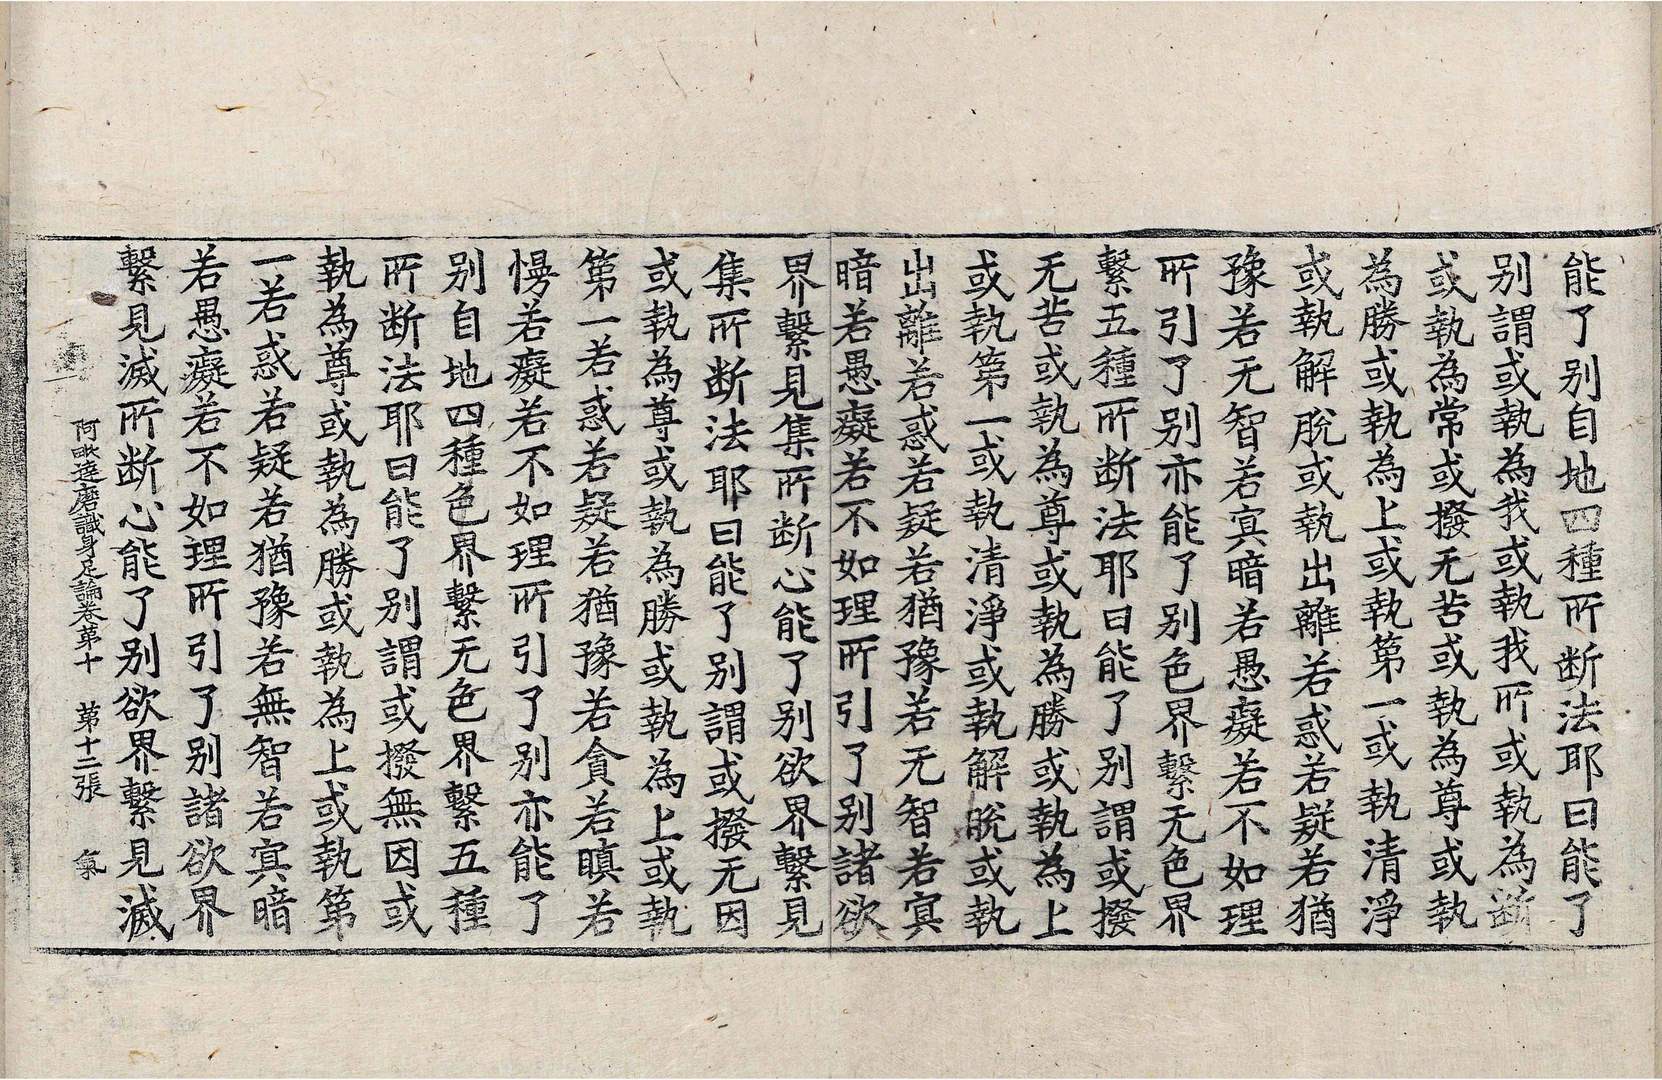 能了别自地四種所断法耶曰能了
别謂或執為我或執我所或執為断
或執為常或撥无苦或執為尊或執
為勝或執為上或執第一或執清淨
或執解脫或執出離若惑若疑若猶
豫若无智若㝠暗若愚癡若不如理
所引了别亦能了别色界繫无色界
繫五種所断法耶曰能了别謂或撥
无苦或執為尊或執為勝或執為上
或執第一或執清淨或執解脫或執
出離若惑若疑若猶豫若无智若㝠
暗若愚癡若不如理所引了别諸欲
界繫見集所断心能了别欲界繫見
集所断法耶曰能了别謂或撥无因
或執為尊或執為勝或執為上或執
第一若惑若疑若猶豫若貪若瞋若
慢若癡若不如理所引了别亦能了
别自地四種色界繫无色界繫五種
所断法耶曰能了别謂或撥無因或
執為尊或執為勝或執為上或執第
一若惑若疑若猶豫若無智若㝠暗
若愚癡若不如理所引了别諸欲界
繫見滅所断心能了别欲界繫見滅
阿毗達磨識身足論卷第十 第十二張 氣